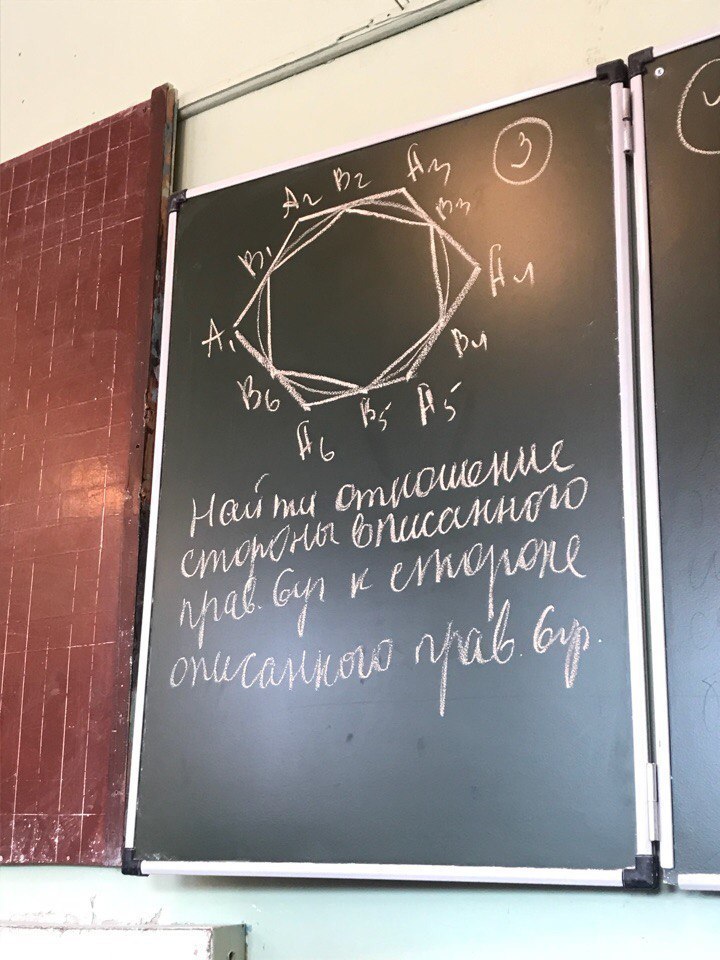 3
A2 B2 A3
B3
B1
A4
A1
B4
B6 B5 A5
A6
Найти отношение
стороны вписанного
прав. 6уг к стороне
описанного прав. 6уг.